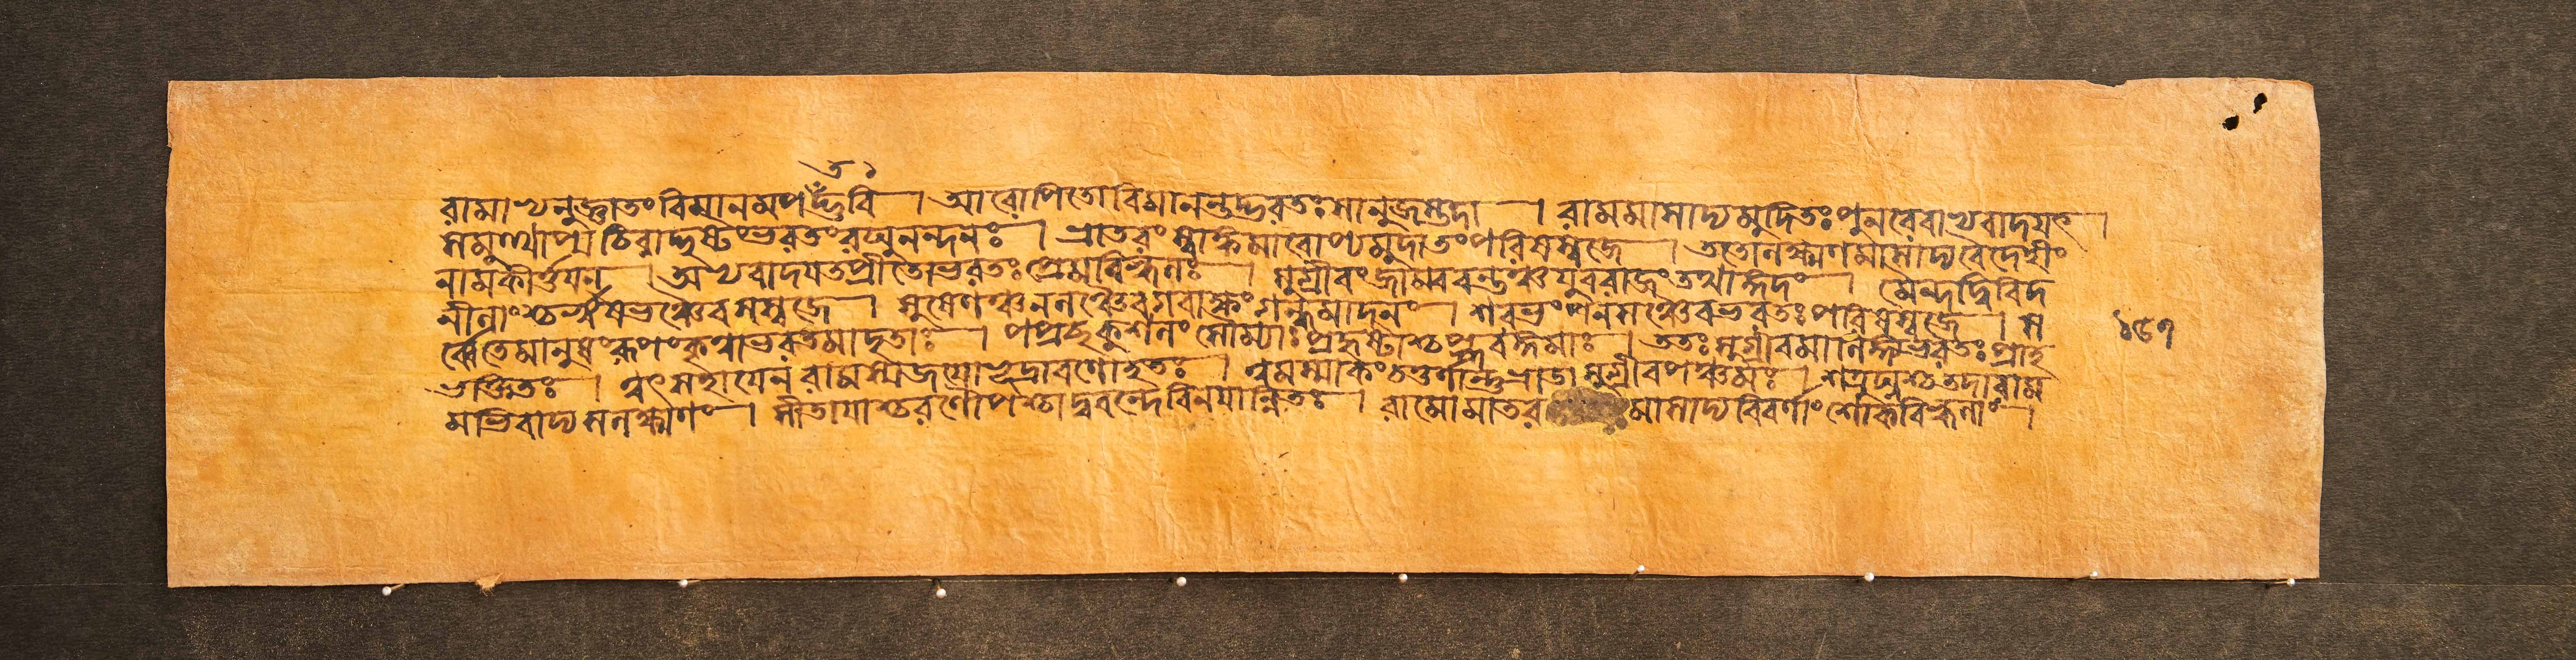 ত ১
রামাভ্যনুজ্ঞাতং বিমানমপদ্ভুবি । আরোপিতো বিমানন্তদ্ভরতঃ সানুজস্তদা । রামমাসাদ্য মুদিতঃ পুনরেবাভ্যবাদয়ৎ ।
সমুত্থাপ্য চিরাদ্দৃষ্টং ভরতং রঘুনন্দনঃ । ভ্রাতরং স্বাঙ্কমারোপ্য মুদা তং পরিষস্বজে । ততো লক্ষ্মণমাসাদ্য বৈদেহীং
নাম কীর্ত্তয়ন । অভ্যবাদয়ত প্রীতো ভরতঃ প্রেমবিহ্বলঃ । সুগ্রীবং জাম্ববন্তঞ্চ যুবরাজং তথাঙ্গদং । মৈন্দদ্বিবিদ
নীলাংশ্চ ঋষভঞ্চৈব সস্বজে । সুষেণঞ্চ নলঞ্চৈব গবাক্ষং গন্ধমাদনং । শরভং পনসঞ্চৈব ভরতঃ পরিষস্বজে । স
র্ব্বে তে মানুষং রূপং কৃত্বা ভরতমাদৃতাঃ । পপ্রচ্ছু কুশলং সৌম্যাঃ প্রহৃষ্টাশ্চ প্লবঙ্গমাঃ । ততঃ সুগ্রীবমালিঙ্গ্য ভরতঃ প্রাহ
ভক্তিতঃ । ত্বৎসহায়েন রামস্য জয়োভূদ্রাবণো হতঃ । ত্বমস্মাকং চতুর্ণান্তু ভ্রাতা সুগ্রীব পঞ্চমঃ । শত্রুঘ্নশ্চ তদা রাম
মভিবাদ্য সলক্ষ্মণং । সীতায়াশ্চরণৌ পশ্চাদ্ববন্দে বিনয়ান্বিতঃ । রামো মাতর মাসাদ্য বিবর্ণাং শোকবিহ্বলাং ।